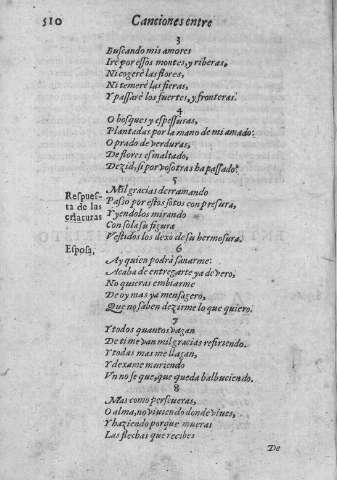 510 Canciones entre
3
Buscando mis amores
Iré por essos montes, y riberas,
Ni cogeré las flores,
Ni temeré las fieras,
Y passaré los fuertes, y fronteras.
4
O bosques y espessuras,
Plantadas por la mano de mi amado:
O prado de verduras,
De flores esmaltado,
Dezid, si por vosotras ha passado.
5
Respues-
ta de las
criaturas
Mil gracias derramando
Passo por estos sotos con presura,
Y yendolos mirando
Con sola su figura
Vestidos los dexo de su hermosura.
Esposa,
6
Ay quien podrà sanarme:
Acaba de entregarte ya de vero,
No quieras embiarme
De oy mas ya mensagero,
Que no saben dezirme lo que quiero.
7
Y todos quantos vagan
De ti me van mil gracias refiriendo.
Y todas mas me llagan,
Y dexame muriendo
Vn no se que, que queda balbuciendo.
8
Mas como perseueras,
O alma, no viuiendo donde viues,
Y haziendo porque mueras
Las flechas que recibes
De